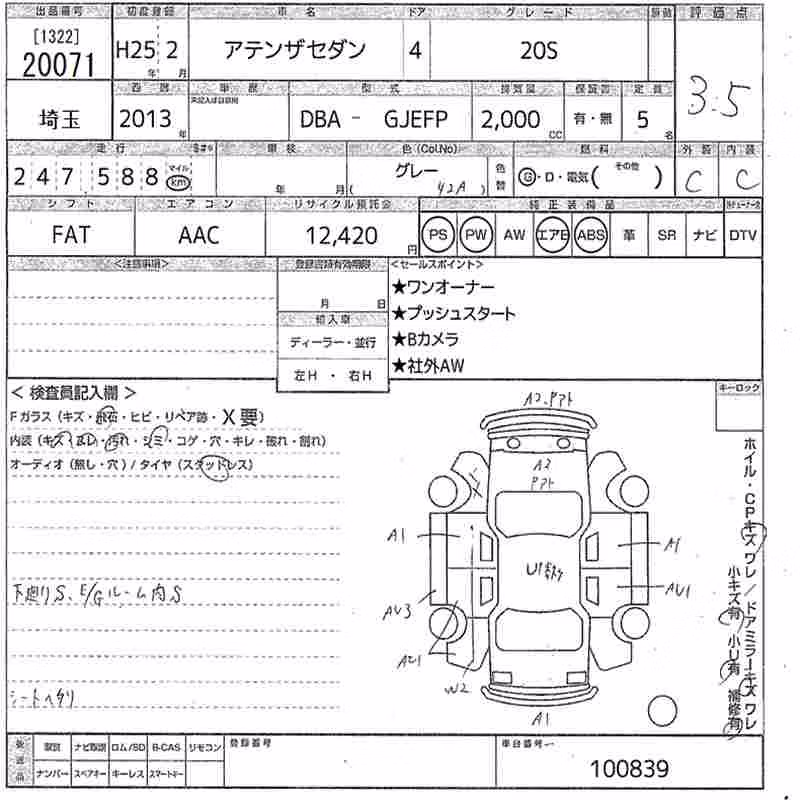 出品番号 初度登録 車名 ドア グレード 評価点
[1322]
20071 H25年 2月 アテンザセダン 4 20S 3.5
西暦 車歴 型式 排気量 保証書 定員
埼玉 2013年 DBA - GJEFP 2,000cc 有・無 5名
走行 車検 色(Col.No) 燃料 外装 内装
247,588 マイル km 年 月 グレー (42A) 色替 G・D・電気( その他 ) C C
シフト エアコン リサイクル預託金 純正装備品
FAT AAC 12,420円 PS PW AW エアB ABS 革 SR ナビ DTV
<注意事項> 登録書類有効期限 <セールスポイント>
月 日
★ワンオーナー
★プッシュスタート
★Bカメラ
★社外AW
輸入車
ディーラー・並行
左H ・ 右H
キーロック
< 検査員記入欄 >
Fガラス (キズ・飛石・ヒビ・リペア跡・X要)
内装 (キズ・汚れ・シミ・コゲ・穴・キレ・破れ・割れ)
オーディオ (無し・穴) / タイヤ (スタッドレス)
下廻りS、E/Gルーム内S
シートヘタリ
A2
A2
A1
A1
AU3
AU1
W2
A1
ホイル・CPキズ ワレ / ドアミラーキズ ワレ
小キズ有 小U有 補修有
後送品 取説 ナビ取説 ロム/SD B-CAS リモコン
ナンバー スペアキー キーレス スマートキー
登録番号 車台番号
100839